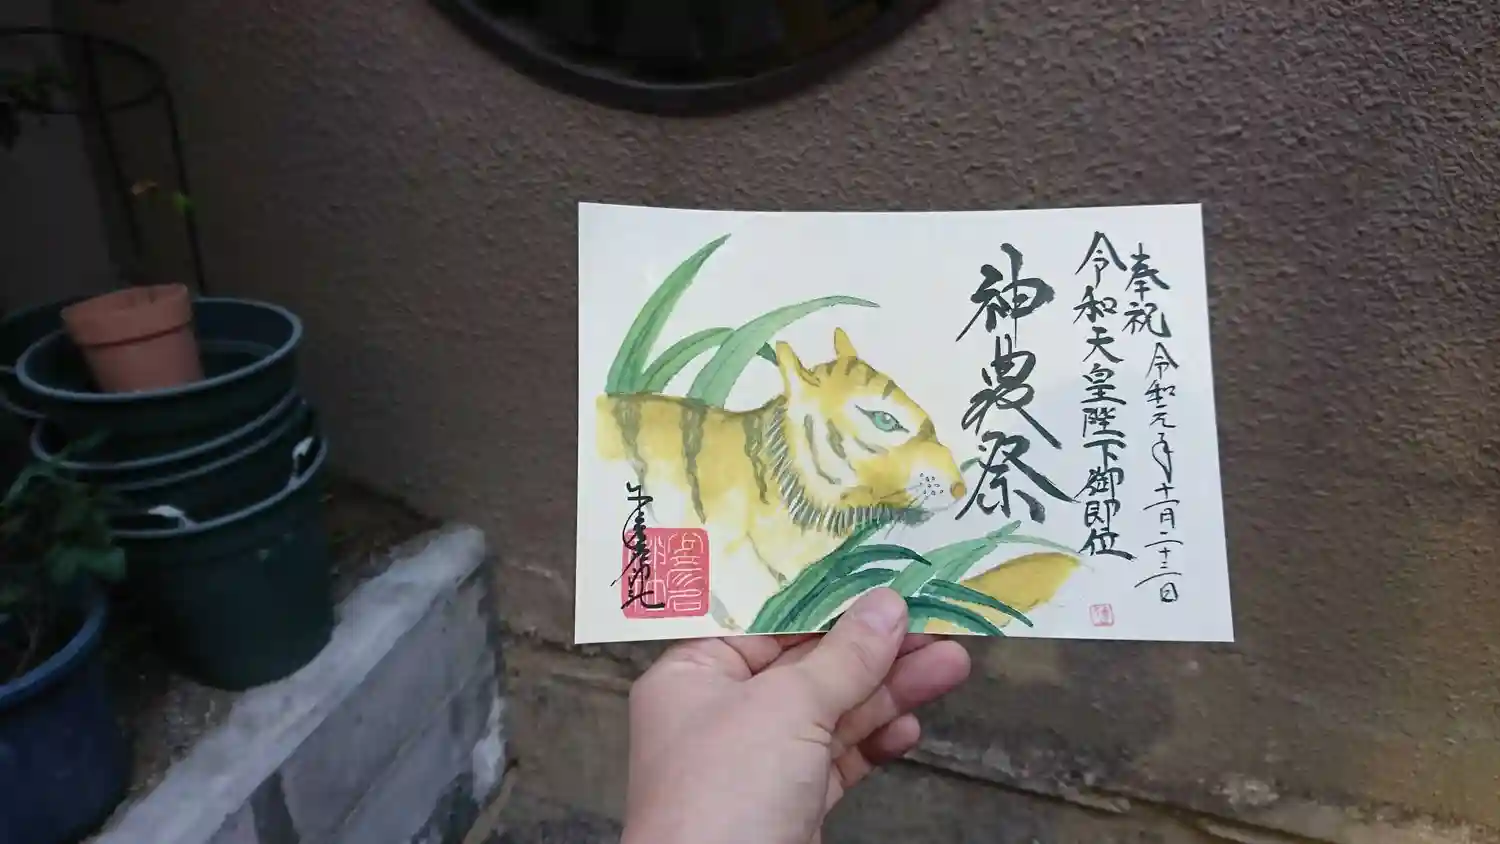 奉祝 令和元年十一月二十三日
令和天皇陛下御即位
神農祭